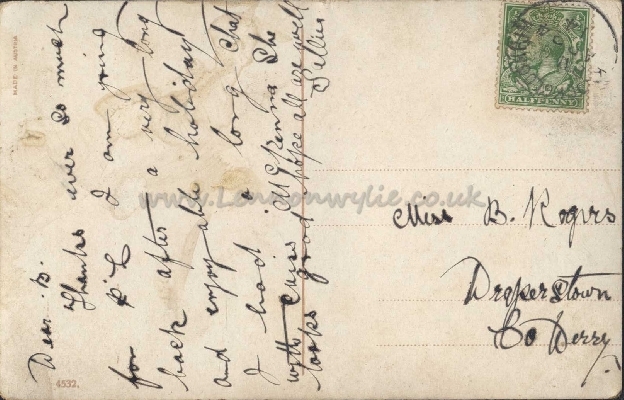 Dear B.
Thanks ever so much
for P.C I am going
back after a very long
and enjoyable holiday
I had a long chat
with Miss McKenna She
looks good hope all are well
Miss B. Rogers
Draperstown
Co Derry
HALFPENNY
MADE IN AUSTRIA
4532.
www.Lennonwylie.co.uk